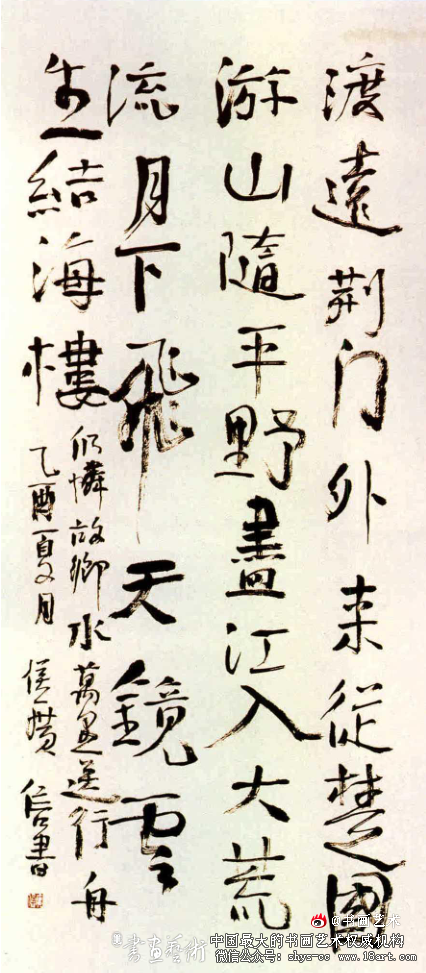 渡遠荆门外来從楚國
游山隨平野盡江入大荒
流月下飛天鏡雲
生結海樓
仍憐故鄉水萬里送行舟
乙酉夏月 侯 信書
@書画藝術
@书画艺术
中国最大的书画艺术权威机构
微信公众号: shys-cc www.18art.com